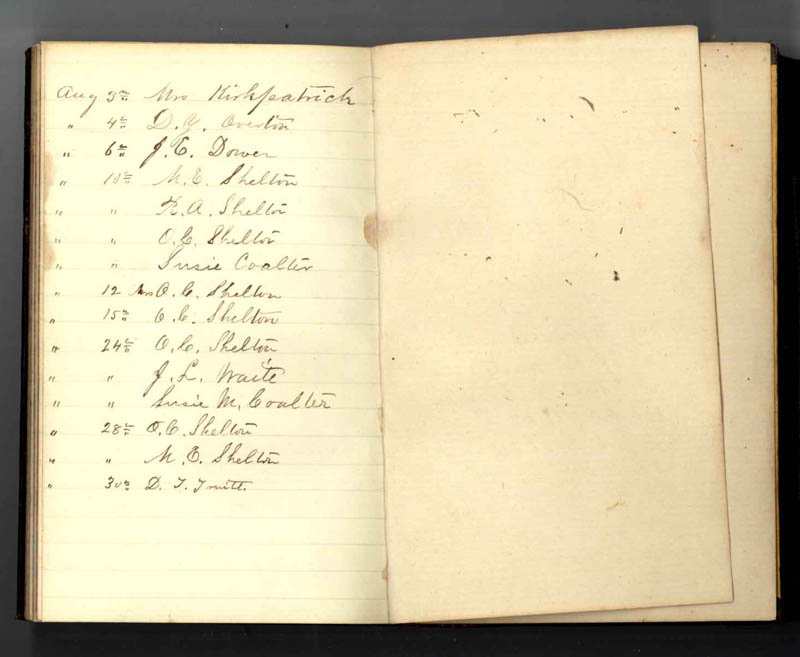 Aug 3rd Mrs Kirkpatrick
" 4th D. Y. Overton
" 6th J. C. Dower
" 10th M. E. Shelton
" " R. A. Shelton
" " O. C. Shelton
" " Susie Coalter
" 12 Mrs O. C. Shelton
" 15th O. C. Shelton
" 24th O. C. Shelton
" " J. L. Waite
" " Susie M. Coalter
" 28th O. C. Shelton
" " M. E. Shelton
" 30th D. T. Truitt.